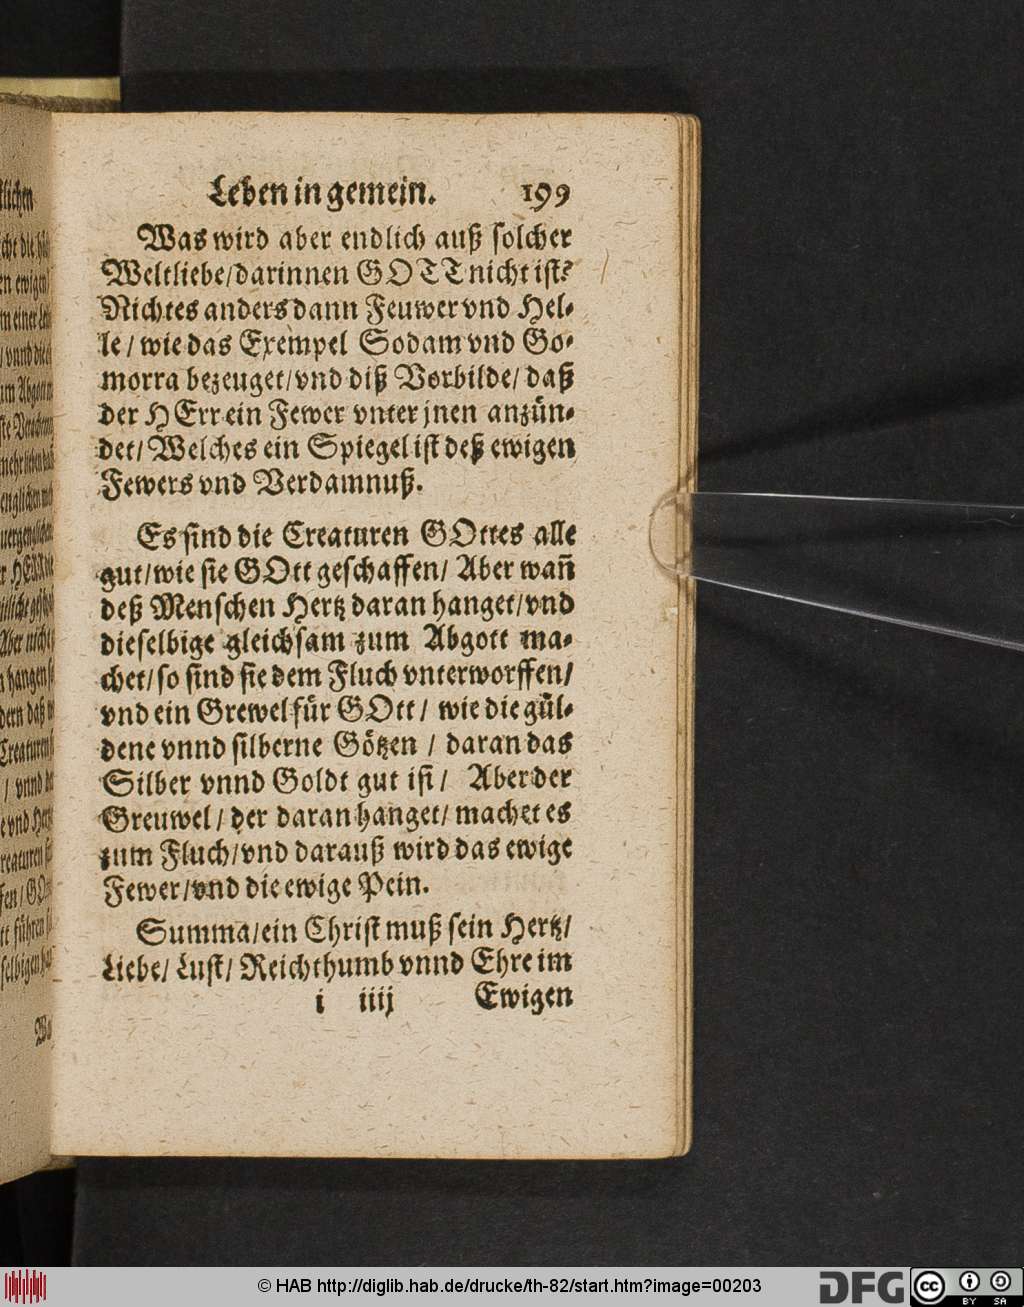 Leben in gemein. 199
Was wird aber endlich auß solcher
Weltliebe/darinnen GOTT nicht ist?
Nichtes anders dann Feuwer vnd Hel-
le/ wie das Exempel Sodam vnd Go-
morra bezeuget/vnd diß Vorbilde/ daß
der HErr ein Fewer vnter jnen anzün-
det/ Welches ein Spiegel ist deß ewigen
Fewers vnd Verdamnuß.
Es sind die Creaturen GOttes alle
gut/wie sie GOtt geschaffen/ Aber wañ
deß Menschen Hertz daran hanget/vnd
dieselbige gleichsam zum Abgott ma-
chet/so sind sie dem Fluch vnterworffen/
vnd ein Grewel für GOtt/ wie die gül-
dene vnnd silberne Götzen / daran das
Silber vnnd Goldt gut ist/ Aber der
Greuwel/ der daran hanget/ machet es
zum Fluch/vnd darauß wird das ewige
Fewer/vnd die ewige Pein.
Summa/ein Christ muß sein Hertz/
Liebe/ Lust/ Reichthumb vnnd Ehre im
i iiij Ewigen
© HAB http://diglib.hab.de/drucke/th-82/start.htm?image=00203
DFG
cc BY SA